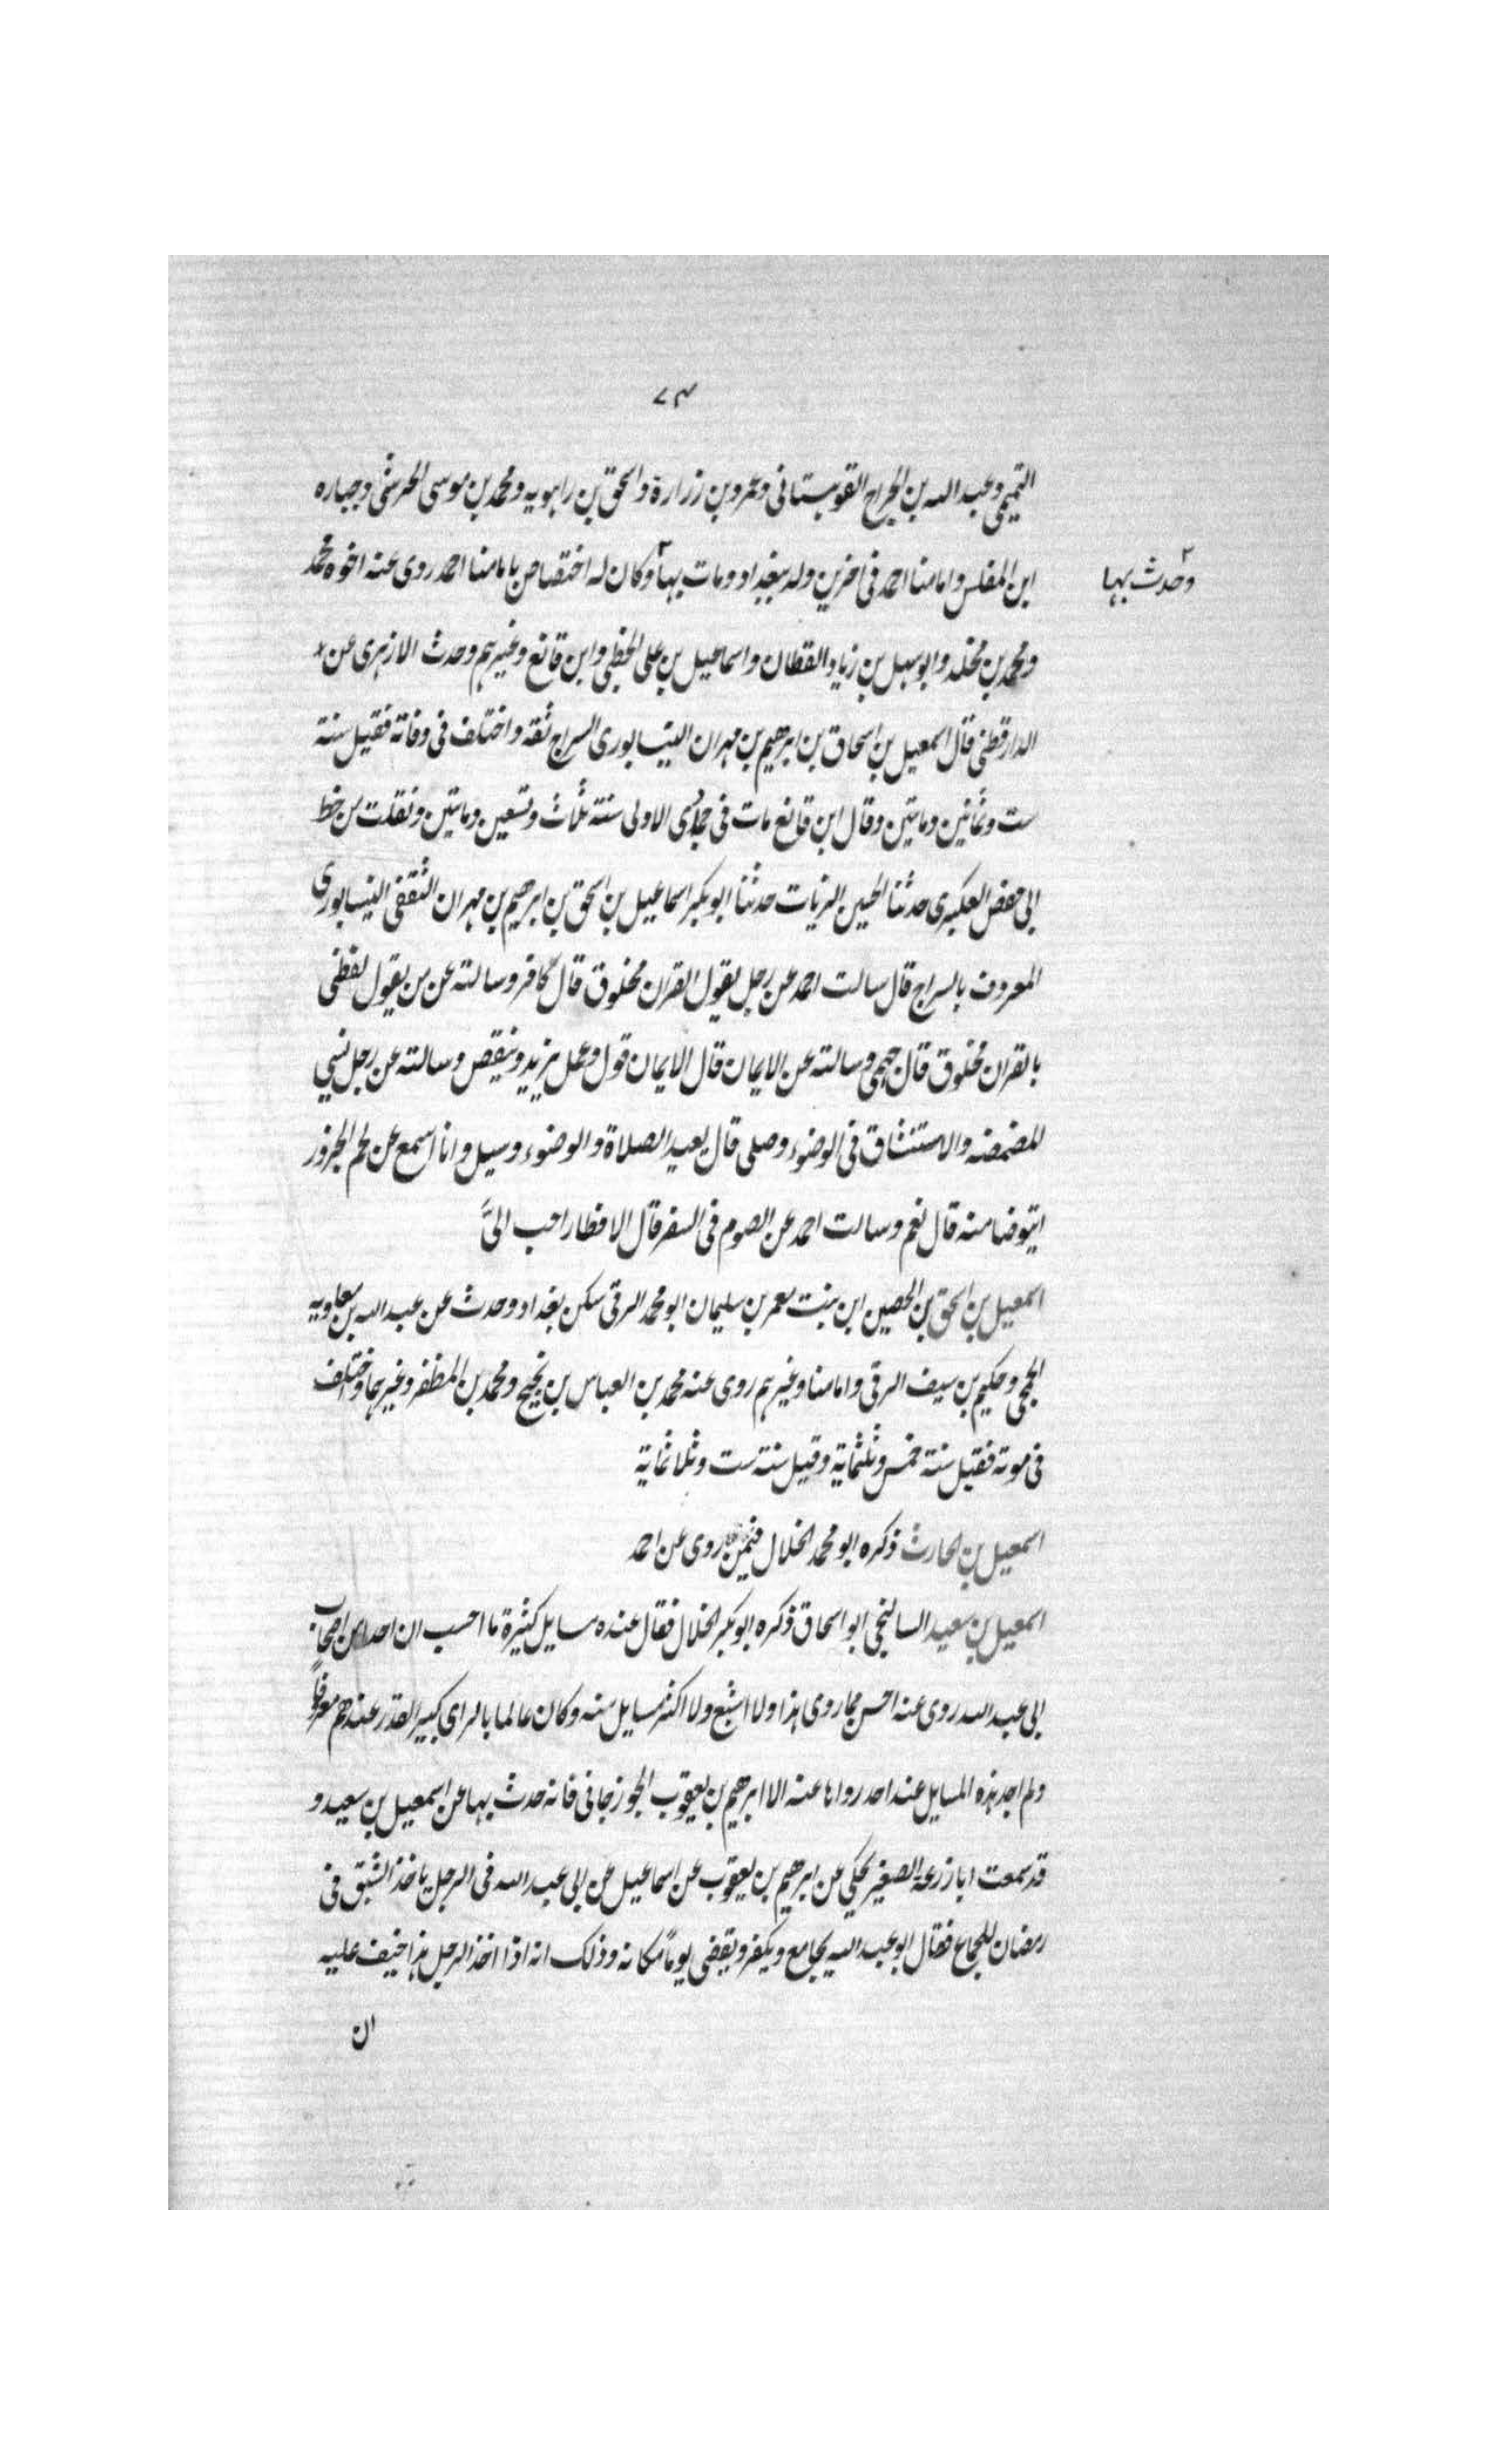 ٧٣
التميمى وعبد الله بن الجراح القوهستانى وعمرو بن زرارة واسحق بن راهويه ومحمد بن موسى الحرشى وجباره
ابن المغلس وامامنا احمد فى اخرين ولد ببغداد ومات بها وكان له اختصاص بامامنا احمد روى عنه اخوه محمد
وحدث بها
ومحمد بن مخلد وابو سهل بن زياد القطان واسماعيل بن على الخطبى وابن قانع وغيرهم وحدث الازهرى عن
الدارقطنى قال اسمعيل بن اسحاق بن ابرهيم بن مهران النيسابورى السراج ثقة واختلف فى وفاته فقيل سنة
ست وثمانين ومايتين وقال ابن قانع مات فى جمادى الاولى سنة ثلاث وتسعين ومايتين ونقلت من خط
ابى حفص العكبرى حدثنا الحسين الزيات حدثنا ابو بكر اسماعيل بن اسحق بن ابرهيم بن مهران الثقفى النيسابورى
المعروف بالسراج قال سالت احمد عن رجل يقول القران مخلوق قال كافر وسالته عن من يقول لفظى
بالقران مخلوق قال جهمى وسالته عن الايمان قال الايمان قول وعمل يزيد وينقص وسالته عن رجل نسى
المضمضه والاستنشاق فى الوضوء وصلى قال يعيد الصلاة والوضوء وسيل وانا اسمع عن لحم الجزور
ايتوضا منه قال نعم وسالت احمد عن الصوم فى السفر قال الافطار احب الىَّ
اسمعيل بن اسحق بن الحصين ابن بنت معمر بن سليمان ابو محمد الرقى سكن بغداد وحدث عن عبد الله بن معاويه
الجمحى وحكيم بن سيف الرقى وامامنا وغيرهم روى عنه محمد بن العباس بن نجيح ومحمد بن المظفر وغيرهما واختلف
فى موته فقيل سنة خمس وثلثماية وقيل سنة ست وثلاثماية
اسمعيل بن الحارث ذكره ابو محمد الخلال فيمن روى عن احمد
اسمعيل بن سعيد السالنجى ابو اسحاق ذكره ابو بكر الخلال فقال عنده مسايل كثيرة ما احسب ان احدا من اصحاب
ابى عبد الله روى عنه احسن مما روى هذا ولا اشبع ولا اكثر مسايل منه وكان عالما بالراى كبير القدر عندهم معروفاً
ولم اجد هذه المسايل عند احد رواها عنه الا ابرهيم بن يعقوب الجوزجانى فانه حدث بها عن اسمعيل بن سعيد و
قد سمعت ابا زرعة الصغير يحكى عن ابرهيم بن يعقوب عن اسماعيل عن ابى عبد الله فى الرجل ياخذ الشبق فى
رمضان للجماع فقال ابو عبد الله يجامع ويكفر ويقضى يوماً مكانه وذلك انه اذا اخذ الرجل هذا خيف عليه
ان